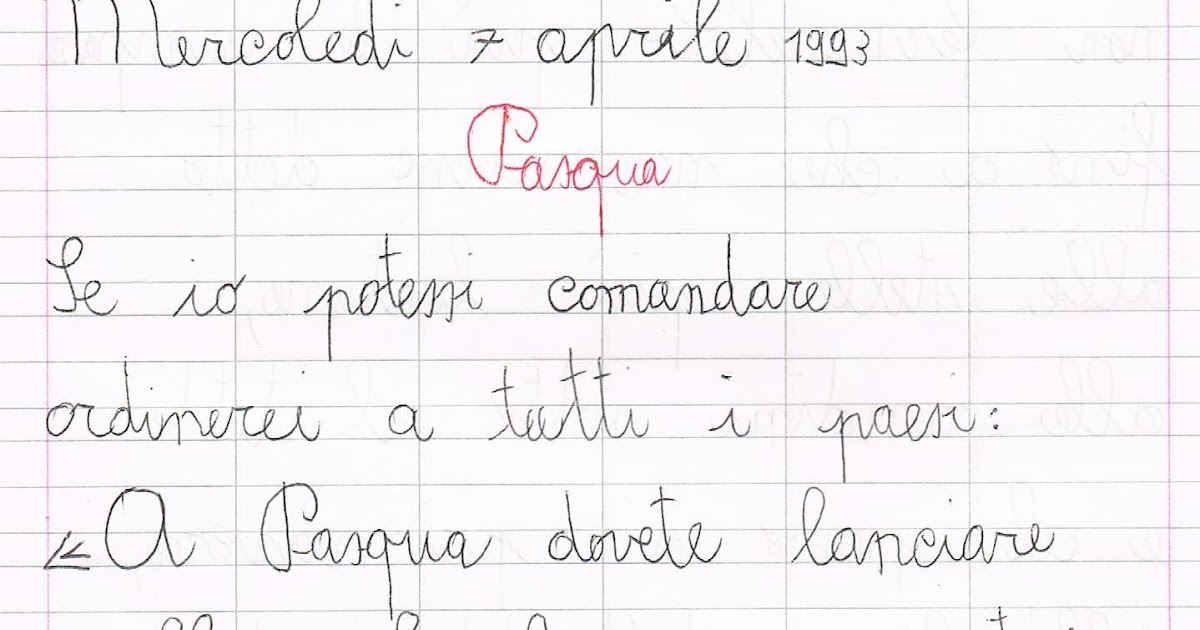 Mercoledi 7 aprile 1993
Pasqua
Se io potessi comandare
ordinerei a tutti i paesi:
«A Pasqua dovete lanciare